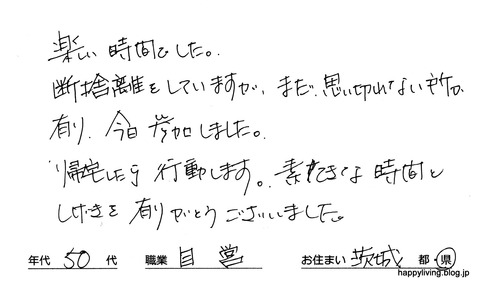 楽しい時間でした。
断捨離をしていますが、まだ、思い切れない所が
有り、今日参加しました。
帰宅したら行動します。素たきな時間と
しげきを有りがとうございました。
年代 50 代 職業 自営 お住まい 茨城 都・県
happyliving.blog.jp